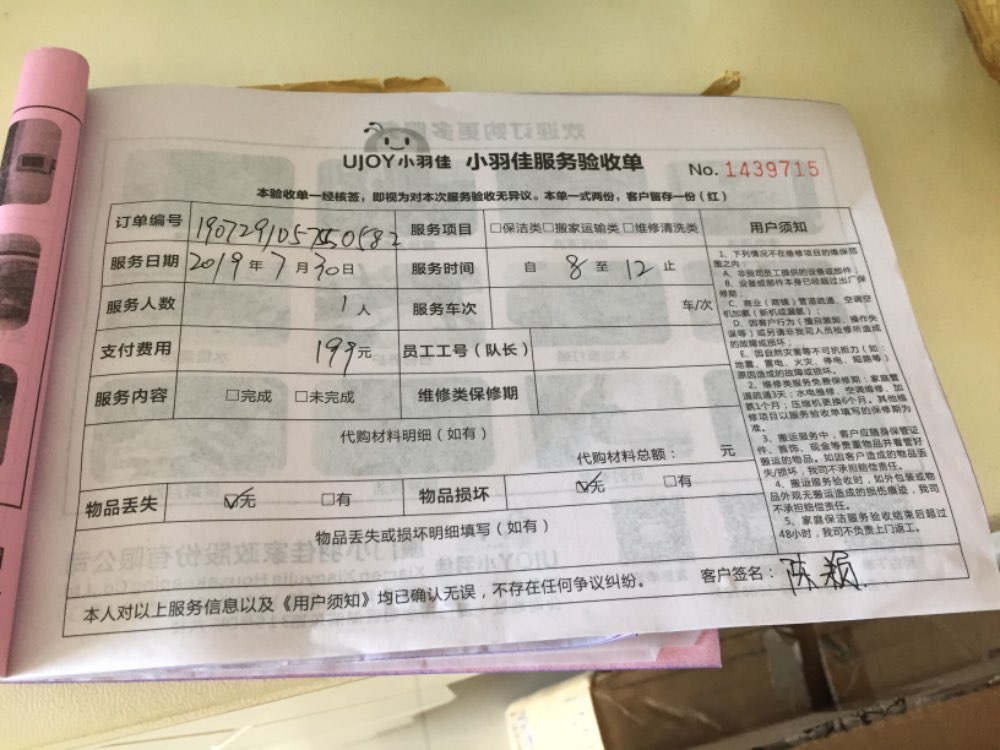 UJOY小羽佳 小羽佳服务验收单 No. 1439715
本验收单一经核签，即视为对本次服务验收无异议。本单一式两份，客户留存一份（红）
订单编号 服务项目 □保洁类□搬家运输类□维修清洗类
服务日期 2019年7月30日 服务时间 自 8 至 12 止
服务人数 1人 服务车次 车/次
支付费用 199元 员工工号（队长）
服务内容 □完成 □未完成 维修类保修期
代购材料明细（如有）
代购材料总额： 元
物品丢失 ☑无 □有 物品损坏 ☑无 □有
物品丢失或损坏明细填写（如有）
本人对以上服务信息以及《用户须知》均已确认无误，不存在任何争议纠纷。 客户签名：陈颖
用户须知
1、下列情况不在维修项目的维保范
围之内：
A、非我司员工提供的设备或部件；
B、设备或部件本身已经超过出厂保
修期；
C、商业（商铺）管道疏通、空调空
机加氨（新机或漏氨）；
D、因客户行为（擅自装卸、操作失
误等）或另请非我司人员检修所造成
的故障或损坏；
E、因自然灾害等不可抗拒力（如：
地震、雷电、火灾、停电、短路等）
原因造成的故障或损坏。
2、维修类服务免费保修期：家庭管
道疏通3天；水电维修、空调维修、加
氨1个月；压缩机更换6个月。其他维
修项目以服务验收单填写的保修期为
准。
3、搬运服务中，客户应随身保管证
件、首饰、现金等贵重物品并看管好
搬运的物品。如因客户造成的物品丢
失/损坏，我司不承担赔偿责任。
4、搬运服务验收时，如外包装或物
品外观无搬运造成的损伤痕迹，我司
不承担赔偿责任。
5、家庭保洁服务验收结束后超过
48小时，我司不负责上门返工。